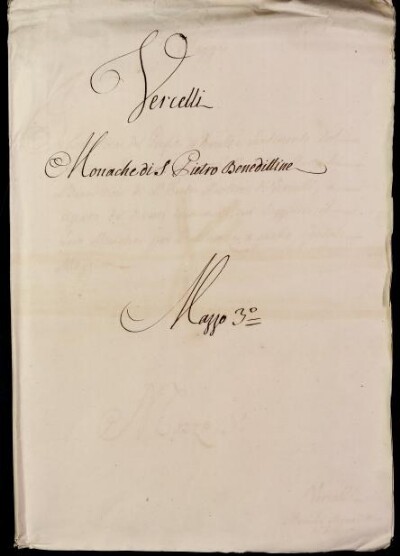 Vercelli
Monache di S. Pietro Benedittine
Mazzo 3º